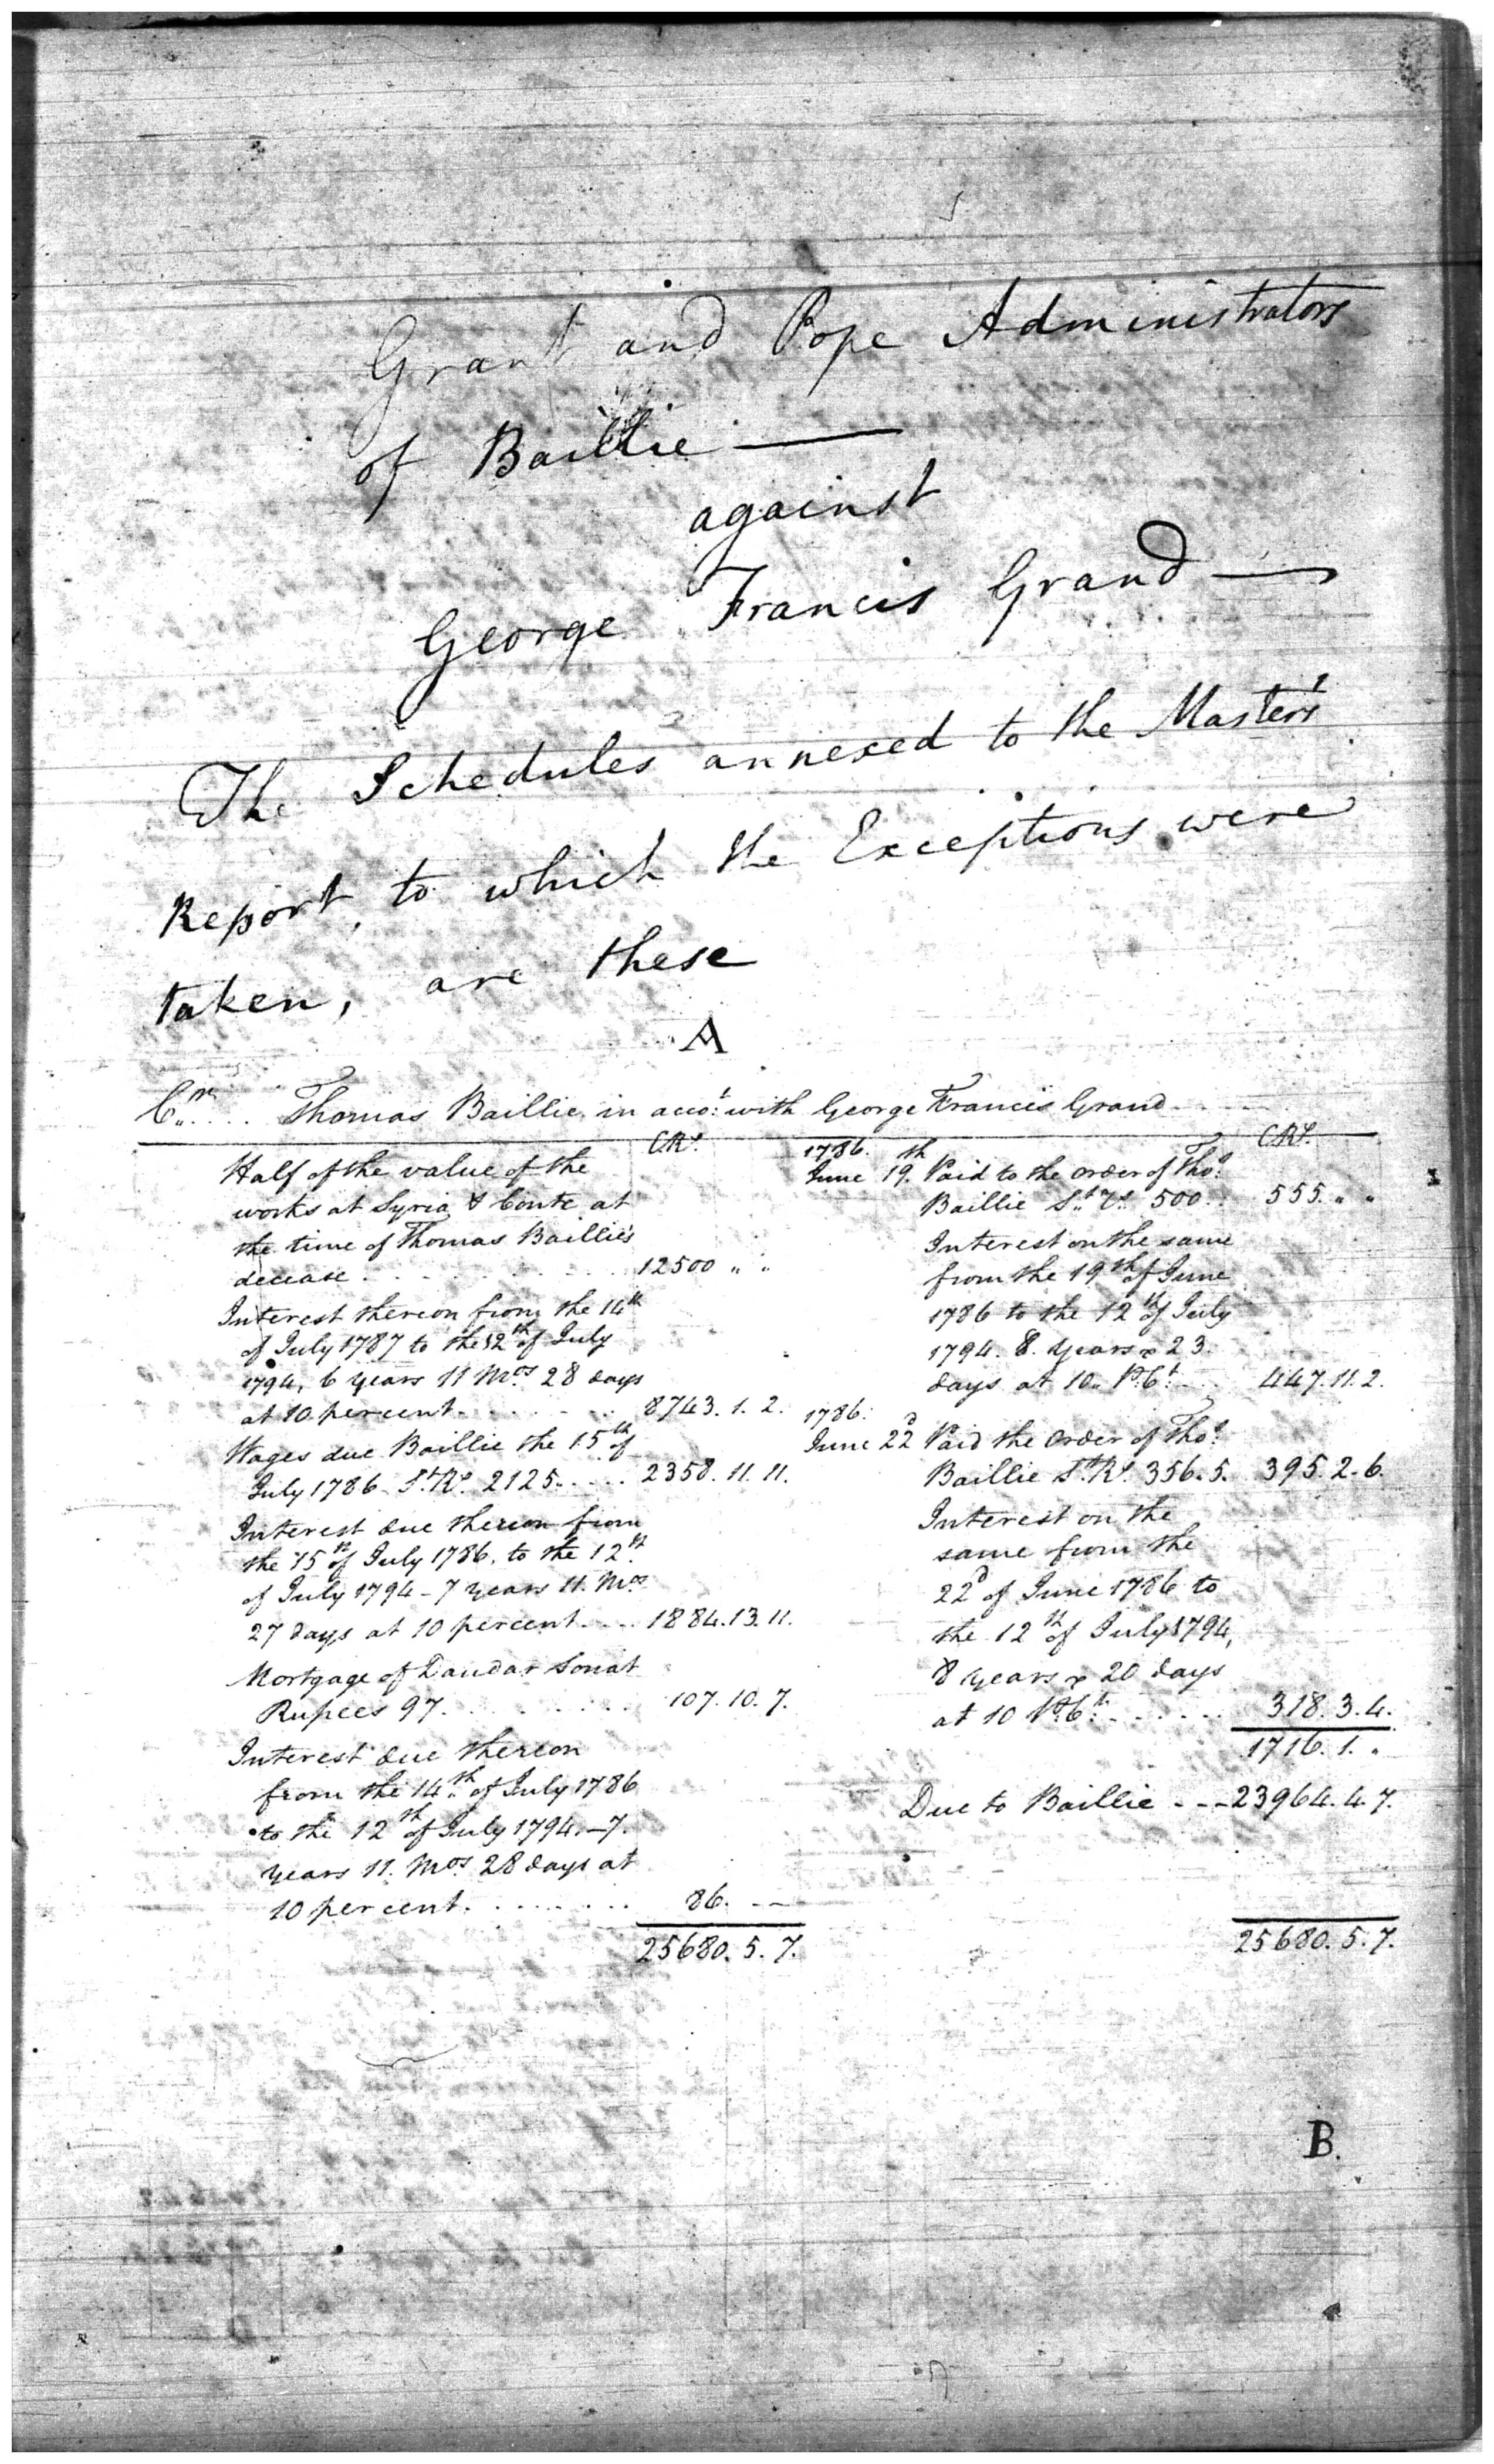 Grant and Pope Administrators
of Baillie —
against
George Francis Grand —
The Schedules annexed to the Master's
Report, to which the Exceptions were
taken, are these
A
Cr. .... Thomas Baillie in acco.t with George Francis Grand
CRs.
Half of the value of the
works at Syria & Conte at
the time of Thomas Baillie's
decease . . . . . . . 12500 " "
Interest thereon from the 14th
of July 1787 to the 12th of July
1794, 6 years 11 Mos. 28 days
at 10 percent . . . . . . 8743. 1. 2.
Wages due Baillie the 15th of
July 1786 St. Rs. 2125 . . . . 2358. 11. 11.
Interest due thereon from
the 15th of July 1786, to the 12th
of July 1794 - 7 years 11. Mos
27 days at 10 percent . . . . 1884. 13. 11.
Mortgage of Sonat
Rupees 97 . . . . . . . 107. 10. 7.
Interest due thereon
from the 14th of July 1786
to the 12th of July 1794. - 7.
years 11. Mos. 28 days at
10 percent . . . . . . . 86. - -
25680. 5. 7.
CRs.
1786.
June 19.th Paid to the order of Thos.
Baillie St. Rs. 500 . . 555. " "
Interest on the same
from the 19th of June
1786 to the 12th of July
1794. 8. years & 23.
days at 10. P. Ct. . . . 447. 11. 2.
1786.
June 22d Paid the order of Thos.
Baillie St. Rs. 356. 5. 395. 2. 6.
Interest on the
same from the
22d of June 1786 to
the 12th of July 1794,
8 years & 20 days
at 10 P. Ct. . . . . . . 318. 3. 4.
1716. 1. "
Due to Baillie - - - 23964. 4. 7.
25680. 5. 7.
B.